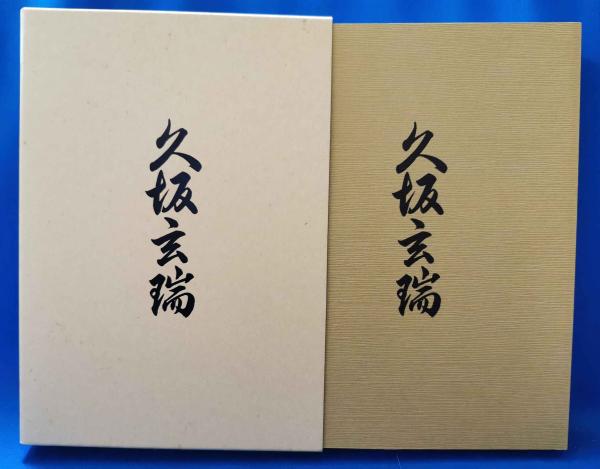 久坂玄瑞
久坂玄瑞